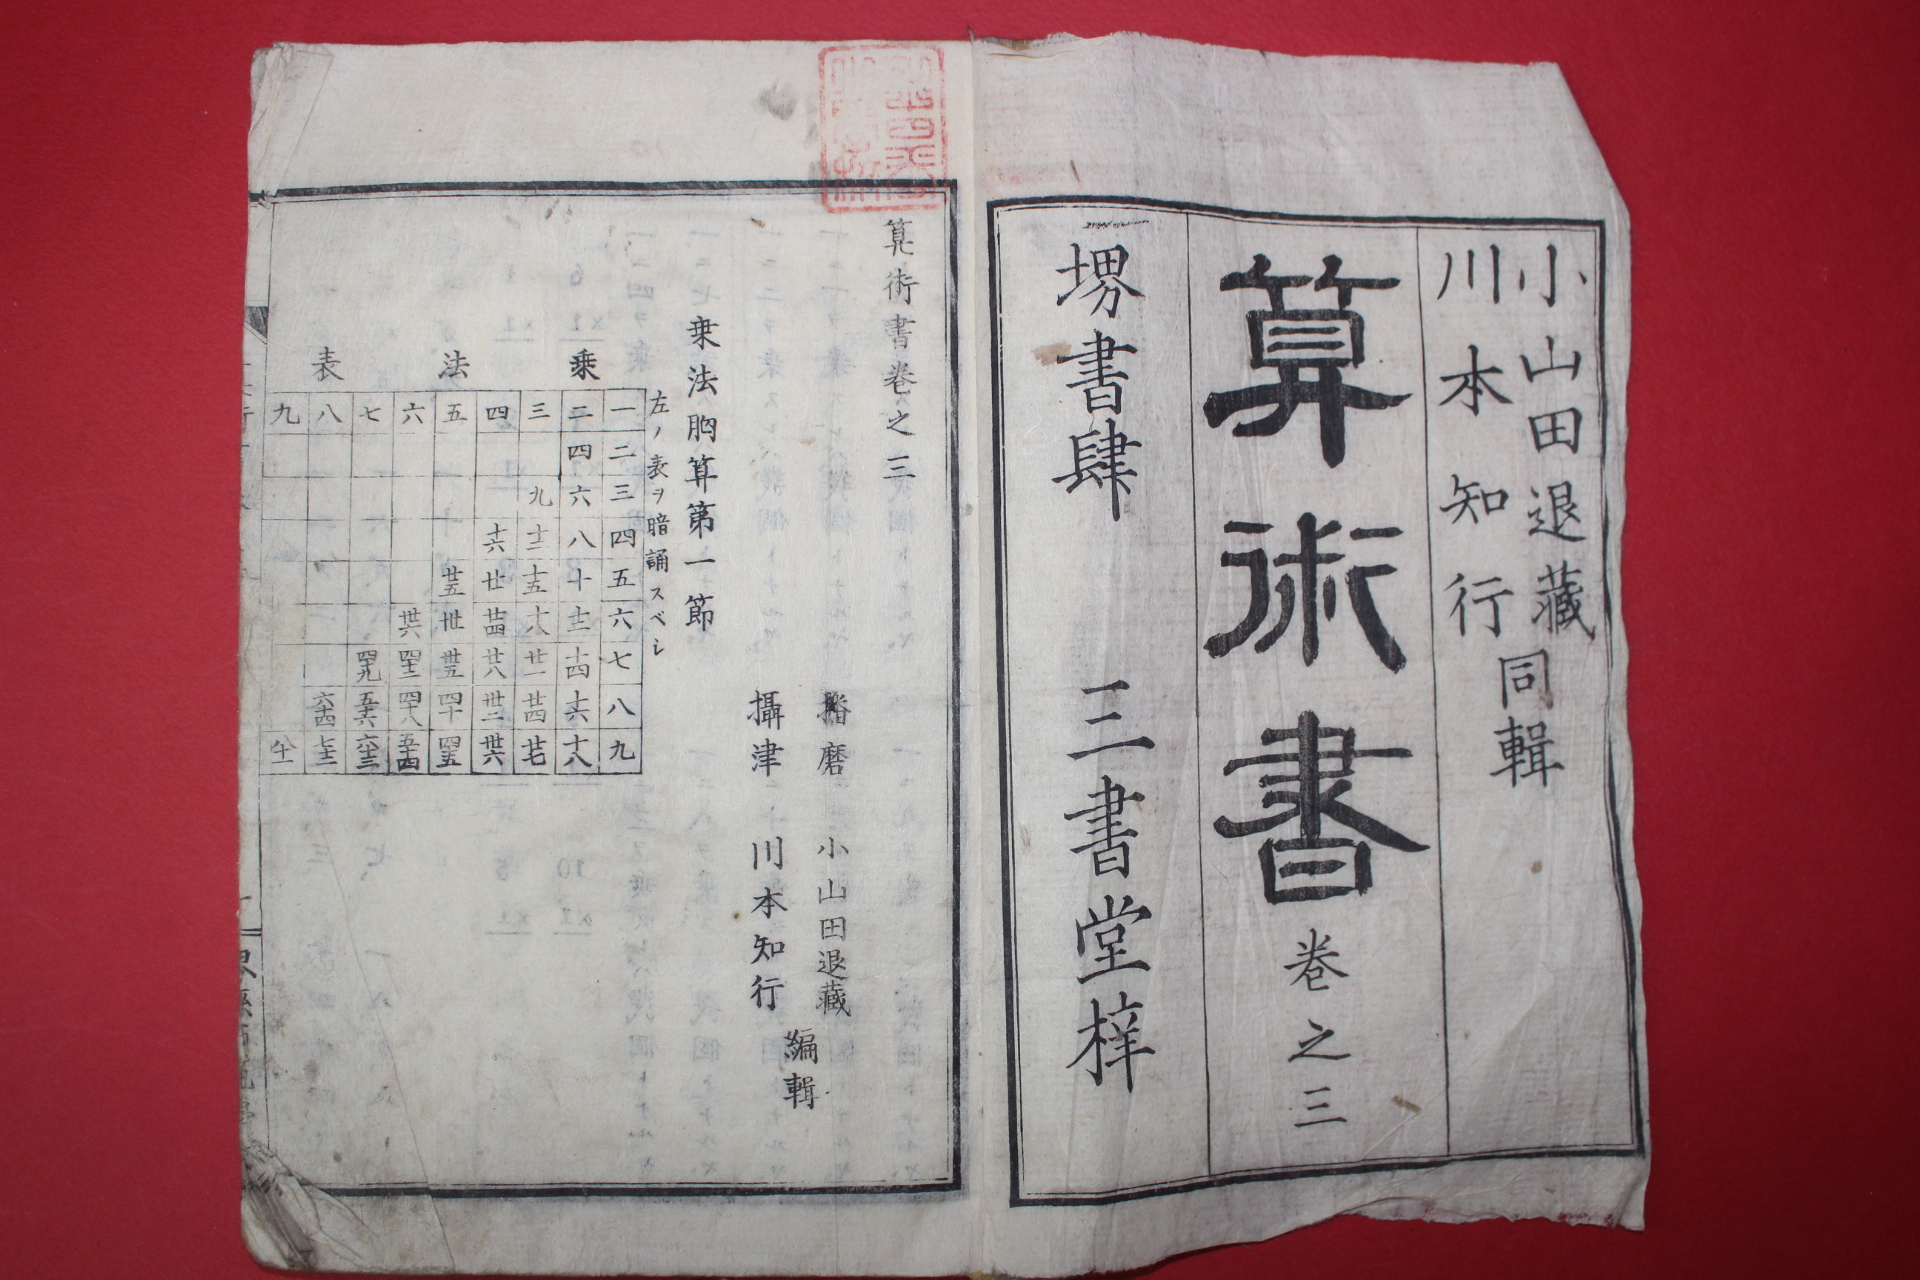 小山田退藏
川本知行
同輯
算術書 卷之三
堺書肆 三書堂梓
算術書卷之三
播磨 小山田退藏
攝津 川本知行
編輯
乗法胸算第一節
左ノ表ヲ暗誦スベシ
乗法表
一 二 三 四 五 六 七 八 九
二 四 六 八 十 十二 十四 十六 十八
三 九 十二 十五 十八 廿一 廿四 廿七
四 十六 廿 廿四 廿八 卅二 卅六
五 廿五 卅 卅五 四十 四五
六 卅六 四十二 四十八 五十四
七 四十九 五十六 六十三
八 六十四 七十二
九 八十一